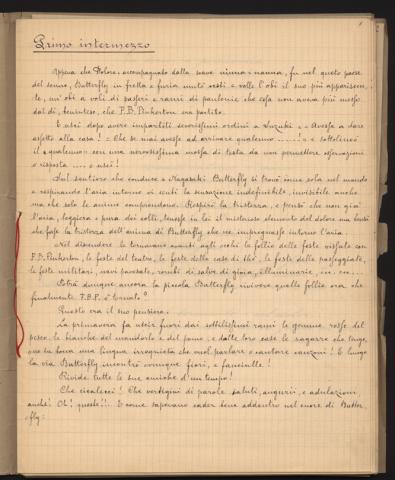 Primo intermezzo
Appena che Dolore, accompagnato dalla soave ninna-nanna, fu nel queto paese
del sonno, Butterfly in fretta e furia mutò vesti e volle l'obi il suo più appariscen-
te, un'obi a voli di passeri e rami di paulonie che essa non aveva più messo
dal dì, tenentesco, che F. B. Pinkerton era partito.
E uscì dopo avere impartiti severissimi ordini a Suzuki: "Avessa a dare
aspetto alla casa! – Che se mai avesse ad arrivare qualcuno ........! e sottolineò
il "qualcuno" con una nervosissima mossa di testa da non permettere osservazioni
o risposta .... e uscì!
Sul sentiero che conduce a Nagasaki Butterfly si trovò come sola nel mondo
e respirando l'aria intorno vi sentì la sensazione indefinibile, invisibile anche
ma che solo le anime comprendono. Respirò la tristezza, e pensò che non già
l'aria, leggiera e pura dei colli, tenesse in se il misterioso elemento del dolore ma bensì
che fosse la tristezza dell'anima di Butterfly che ne impregnasse intorno l'aria.
Nel discendere le tornavano avanti agli occhi le follie delle feste vissute con
F. B. Pinkerton, le feste del teatro, le feste della casa di thè, le feste delle passeggiate,
le feste militari, navi pavesate, rombi di salve di gioia, illuminarie, ecc. ecc....
Potrà dunque ancora la piccola Butterfly rivivere quelle follie ora che
finalmente F.B.P. è tornato?
Questo era il suo pensiero.
La primavera fa uscir fuori dai sottilissimi rami le gemme, rosse del
pesco, le bianche del mandorlo e del pruno, e dalle loro case le ragazze che lungo
la via Butterfly incontrò comunque fiori, e fanciulle!
Rivide tutte le sue amiche d'un tempo!
Che cicalecci! Che vertigini di parole, saluti, auguri, e adulazioni,
anche! Oh! queste!!.. E come sapevano cader bene addentro nel cuore di Butter-
fly: